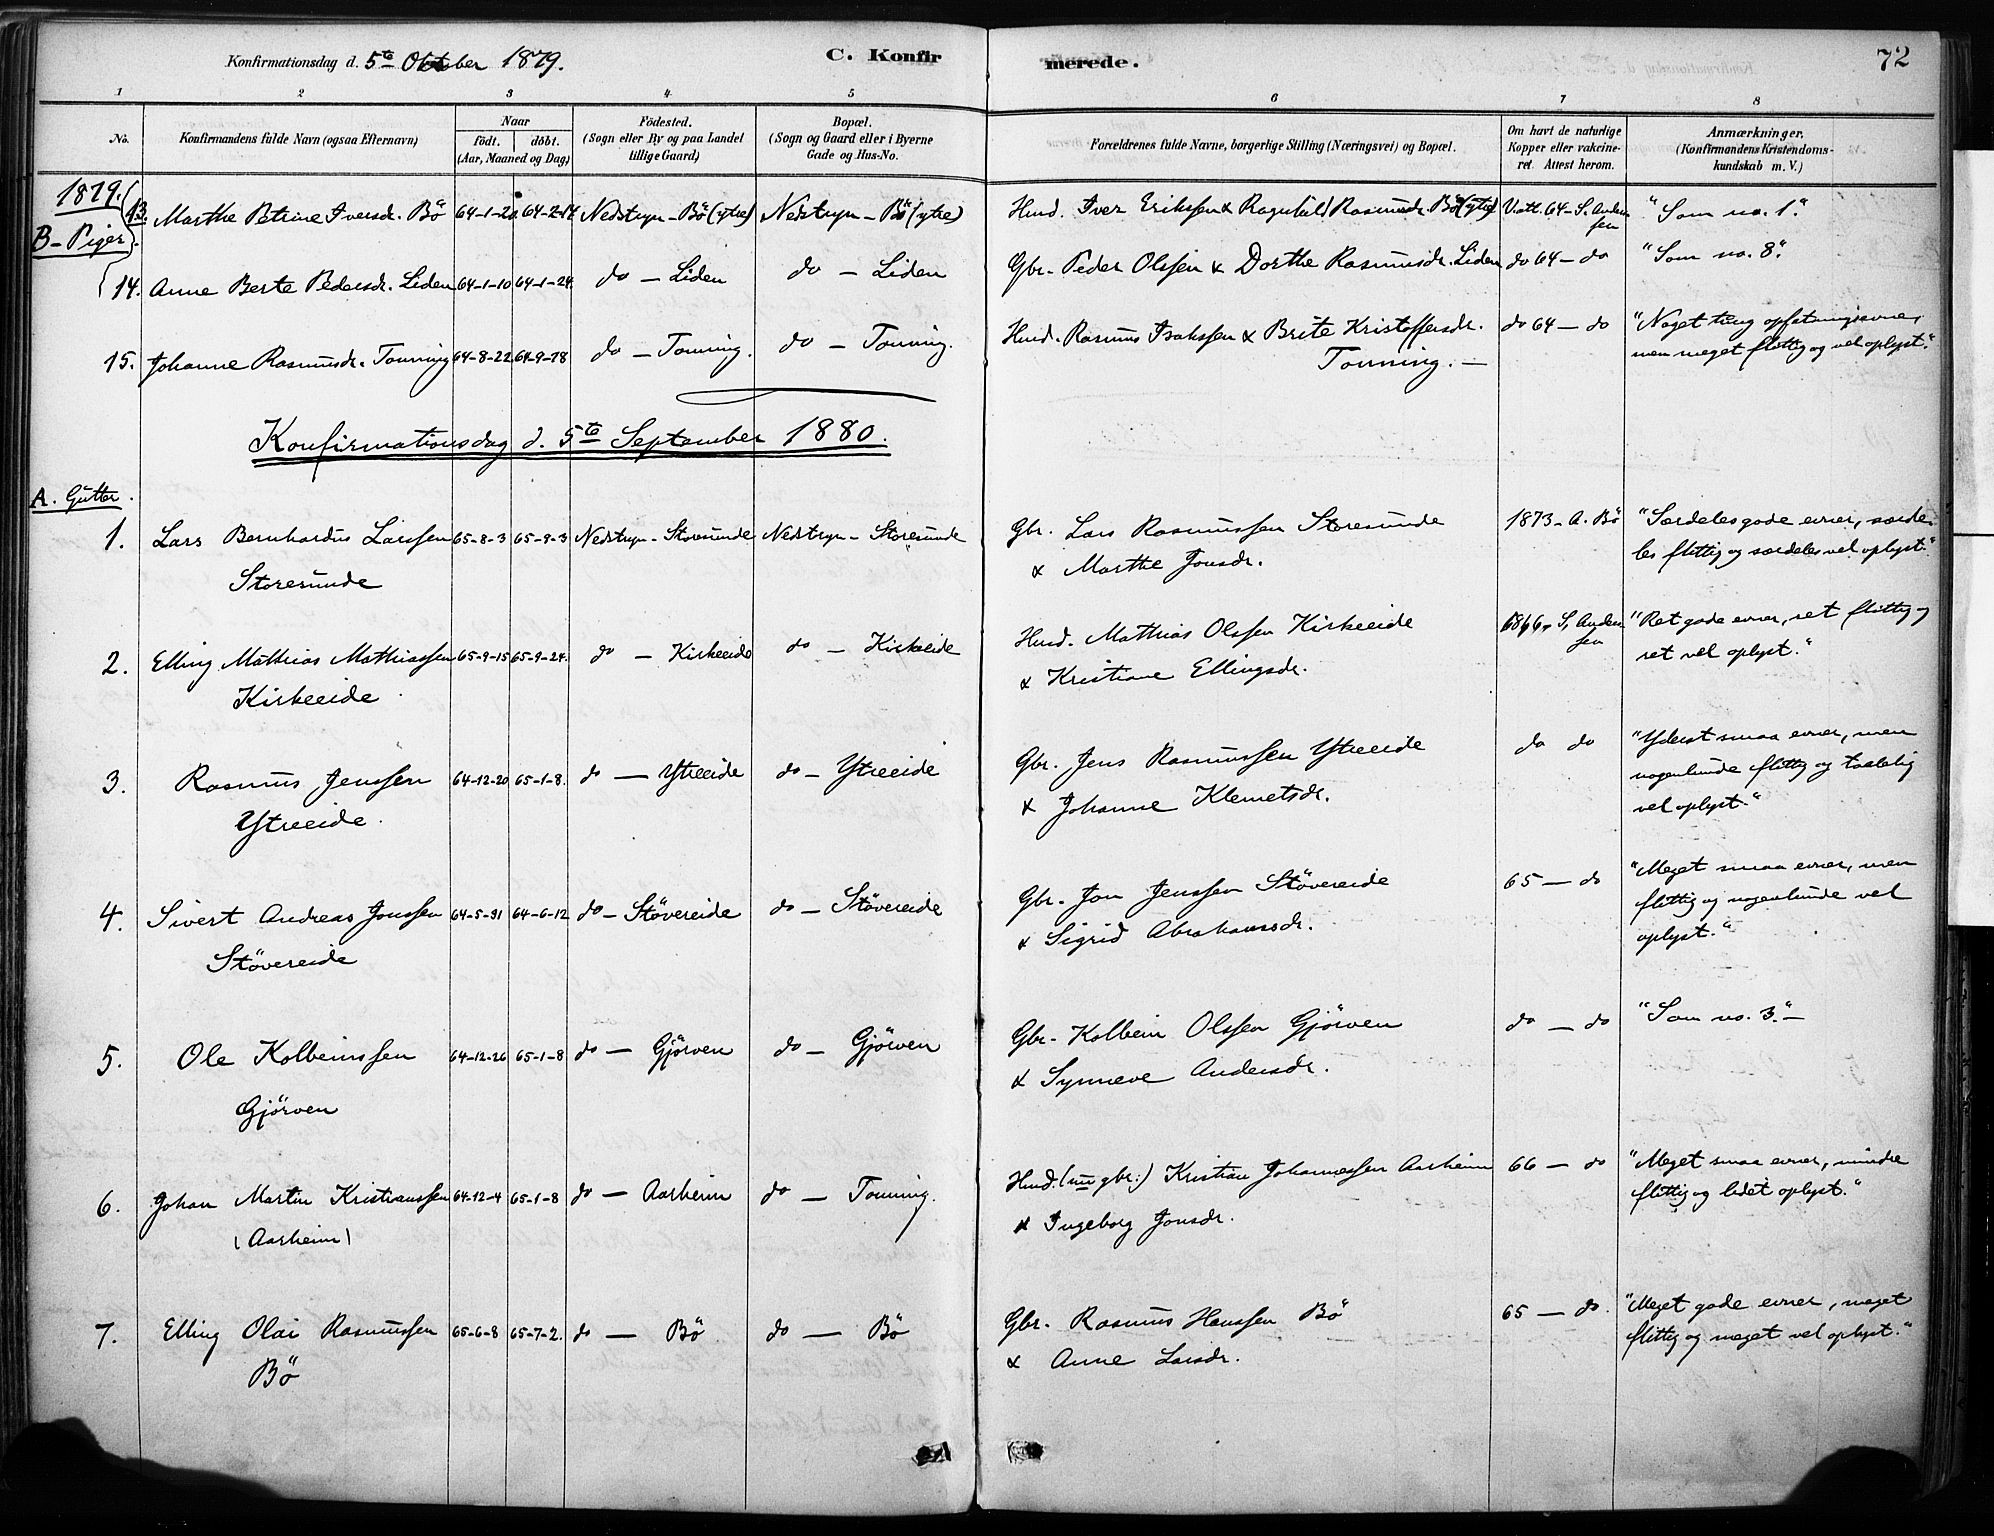 Konfirmationsdag d. 5te Oktober 1879.
C. Konfirmerede.
72
1 2 3 4 5 6 7 8
No.
Konfirmandens fulde Navn (ogsaa Efternavn)
Naar
födt. döbt.
(Aar, Maaned og Dag)
Födested.
(Sogn eller By og paa Landet
tillige Gaard)
Bopæl.
(Sogn og Gaard eller i Byerne
Gade og Hus-No.
Forældrenes fulde Navne, borgerlige Stilling (Næringsvei) og Bopæl.
Om havt de naturlige
Kopper eller vakcine-
ret. Attest herom.
Anmærkninger.
(Konfirmandens Kristendoms-
kundskab m. V.)
1879.
B-Piger
13. Marthe Petrine Iversdr. Bö 64-1-20 64-2-14 Nedstryn-Bö (ytre) Nedstryn-Bö (ytre) Husd. Iver Erikssen & Ragnhild Rasmusdr. Bö (ytre) V. att. 64-S. Ander-
sen
"Som no. 1."
14. Anne Berte Pedersdr. Liden 64-1-10 64-1-24. do - Liden do - Liden Gbr. Peder Olssen & Dorthe Rasmusdr. Liden do 64 - do "Som no. 8."
15. Johanne Rasmusdr. Tonning 64-8-22 64-9-18 do - Tonning. do - Tonning. Husd. Rasmus Isakssen & Brite Kristoffersdr. do 64 - do "Noget tung opfatningsevne,
Tonning. -
men meget flittig og vel oplyst."
Konfirmationsdag d. 5te September 1880.
A. Gutter.
1. Lars Bernhardus Larssen 65-8-3 65-9-3 Nedstryn-Storesunde Nedstryn-Storesunde Gbr. Lars Rasmussen Storesunde 1873-A. Bö "Særdeles gode evner, særde-
Storesunde
& Marthe Jonsdr.
les flittig og særdeles vel oplyst."
2. Elling Mathias Mathiassen 65-9-15 65-9-24. do - Kirkeeide do - Kirkeeide Husd. Mathias Olssen Kirkeeide 1866, S. Ander-
sen
"Ret gode evner, ret flittig og
Kirkeeide
& Kristiane Ellingsdr.
ret vel oplyst."
3. Rasmus Jenssen 64-12-20 65-1-8. do - Ytreeide do - Ytreeide Gbr. Jens Rasmussen Ytreeide do do "Yderst smaa evner, men
Ytreeide.
& Johanne Klemetsdr.
nogenlunde flittig og taalelig
vel oplyst."
4. Sivert Andreas Jonssen 64-5-31 64-6-12 do - Stövereide do - Stövereide Gbr. Jon Jenssen Stövereide 65 - do "Meget smaa evner, men
Stövereide
& Sigrid Abrahamsdr.
flittig og nogenlunde vel
oplyst."
5. Ole Kolbeinssen 64-12-26 65-1-8 do - Gjörven do - Gjörven Gbr. Kolbein Olssen Gjörven do - do "Som no. 3." -
Gjörven
& Synneve Andersdr.
6. Johan Martin Kristianssen 64-12-4 65-1-8 do - Aarheim do - Tonning. Husd. (nu gbr.) Kristian Johannessen Aarheim 66 - do "Meget smaa evner, mindre
(Aarheim)
& Ingeborg Jonsdr.
flittig og lidet oplyst."
7. Elling Olai Rasmussen 65-6-8 65-7-2. do - Bö do - Bö Gbr. Rasmus Hanssen Bö 65 - do. "Meget gode evner, meget
Bö
& Anne Larsdr.
flittig og meget vel oplyst."